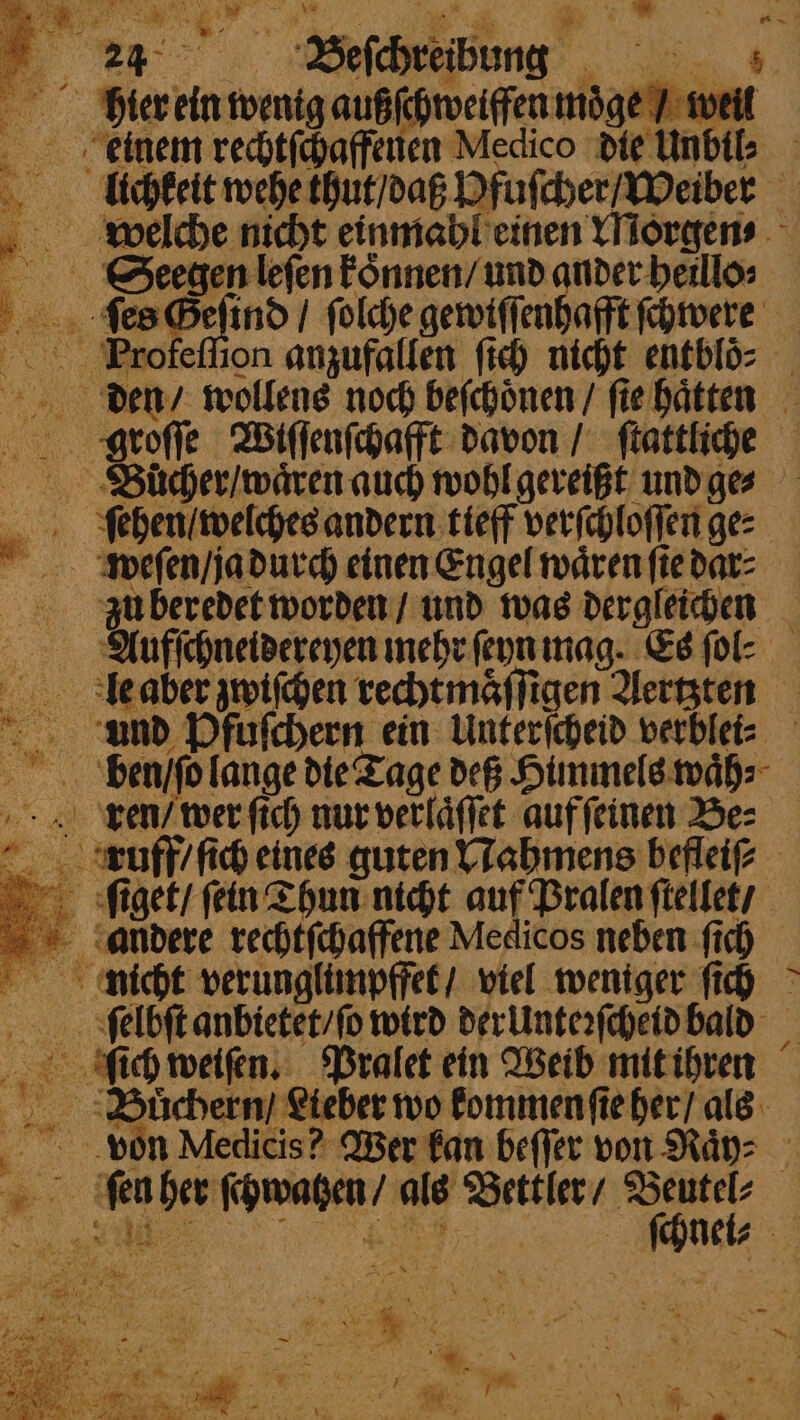 24 Beſchreibung
hier ein wenig außſchweiffen moͤge / weil
einem rechtſchaffenen Medico die Unbil⸗
lichkeit wehe thut/daß Pfuſcher/Weiber
welche nicht einmahl einen Morgen⸗
Seegen leſen koͤnnen/ und ander heillo⸗
ſes Geſind / ſolche gewiſſenhafft ſchwere
Profeſſion anzufallen ſich nicht entbloͤ⸗
den / wollens noch beſchoͤnen / ſie haͤtten
groſſe Wiſſenſchafft davon / ſtattliche
Buͤcher/waͤren auch wohl gereißt und ge⸗
ſehen/welches andern tieff verſchloſſen ge⸗
weſen/ja durch einen Engel waͤren ſie dar⸗
zu beredet worden / und was dergleichen
Aufſchneidereyen mehr ſeyn mag. Es ſol⸗
le aber zwiſchen rechtmaͤſſigen Aertzten
und Pfuſchern ein Unterſcheid verblei⸗
ben/ſo lange die Tage deß Himmels waͤh⸗
ren/ wer ſich nur verlaͤſſet auf ſeinen Be⸗
ruff/ ſich eines guten Nahmens befleiſ⸗
ſiget/ ſein Thun nicht auf Pralen ſtellet/
andere rechtſchaffene Medicos neben ſich
nicht verunglimpffet / viel weniger ſich
ſelbſt anbietet/ſo wird der Unterſcheid bald
ſich weiſen. Pralet ein Weib mit ihren
Buͤchern/ Lieber wo kommen ſie her/ als
von Medicis? Wer kan beſſer von Raͤy⸗
ſen her ſchwatzen / als Bettler / Beutel⸗
ſchnei⸗